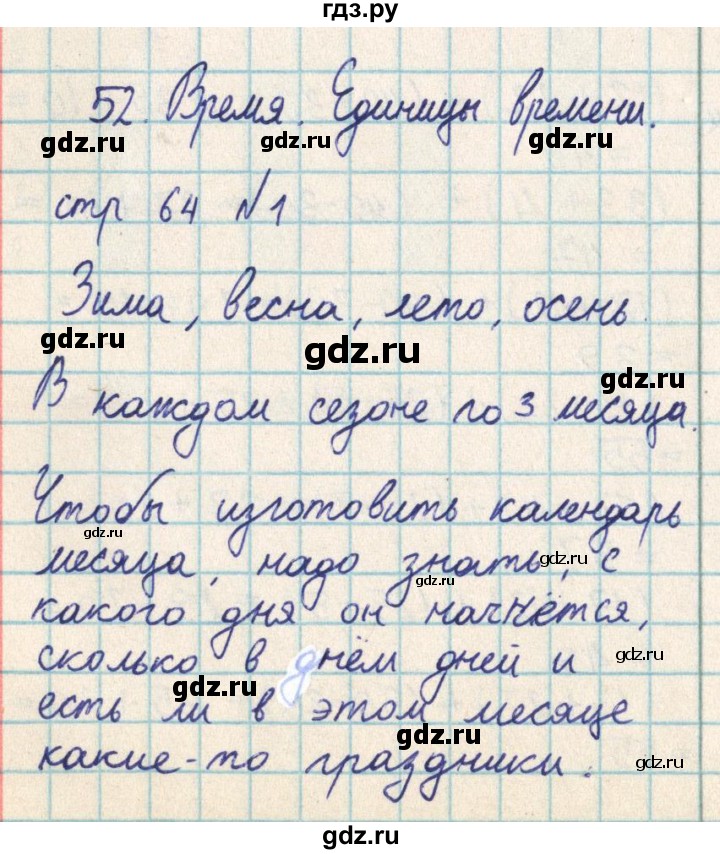 гдз.ру
52. Время. Единицы времени.
gdz.ru gdz.ru gdz.ru
стр 64 №1
Зима, весна, лето, осень.
gdz.ru gdz.ru gdz.ru
В каждом сезоне по 3 месяца.
Чтобы изготовить календарь
gdz.ru gdz.ru
месяца, надо знать, с
gdz.ru
какого дня он начнётся,
сколько в днём дней и
gdz.ru gdz.ru
есть ли в этом месяце
gdz.ru
какие-то праздники.
gdz.ru
gdz.ru